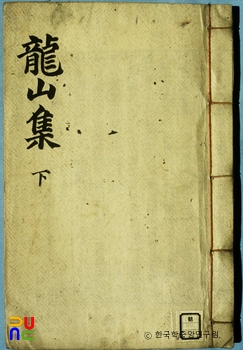 龍山集
下
ⓒ 한국학중앙연구원